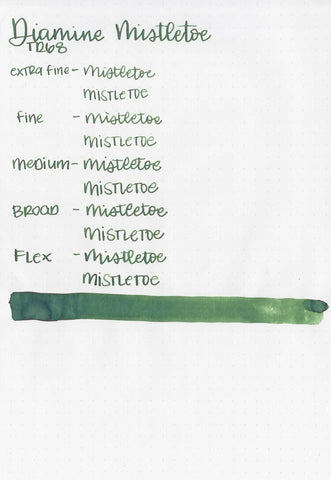 Diamine Mistletoe
TR68
EXTRA FINE - Mistletoe
MISTLETOE
FINE - Mistletoe
MISTLETOE
MEDIUM - Mistletoe
MISTLETOE
BROAD - Mistletoe
MISTLETOE
FLEX - Mistletoe
MISTLETOE